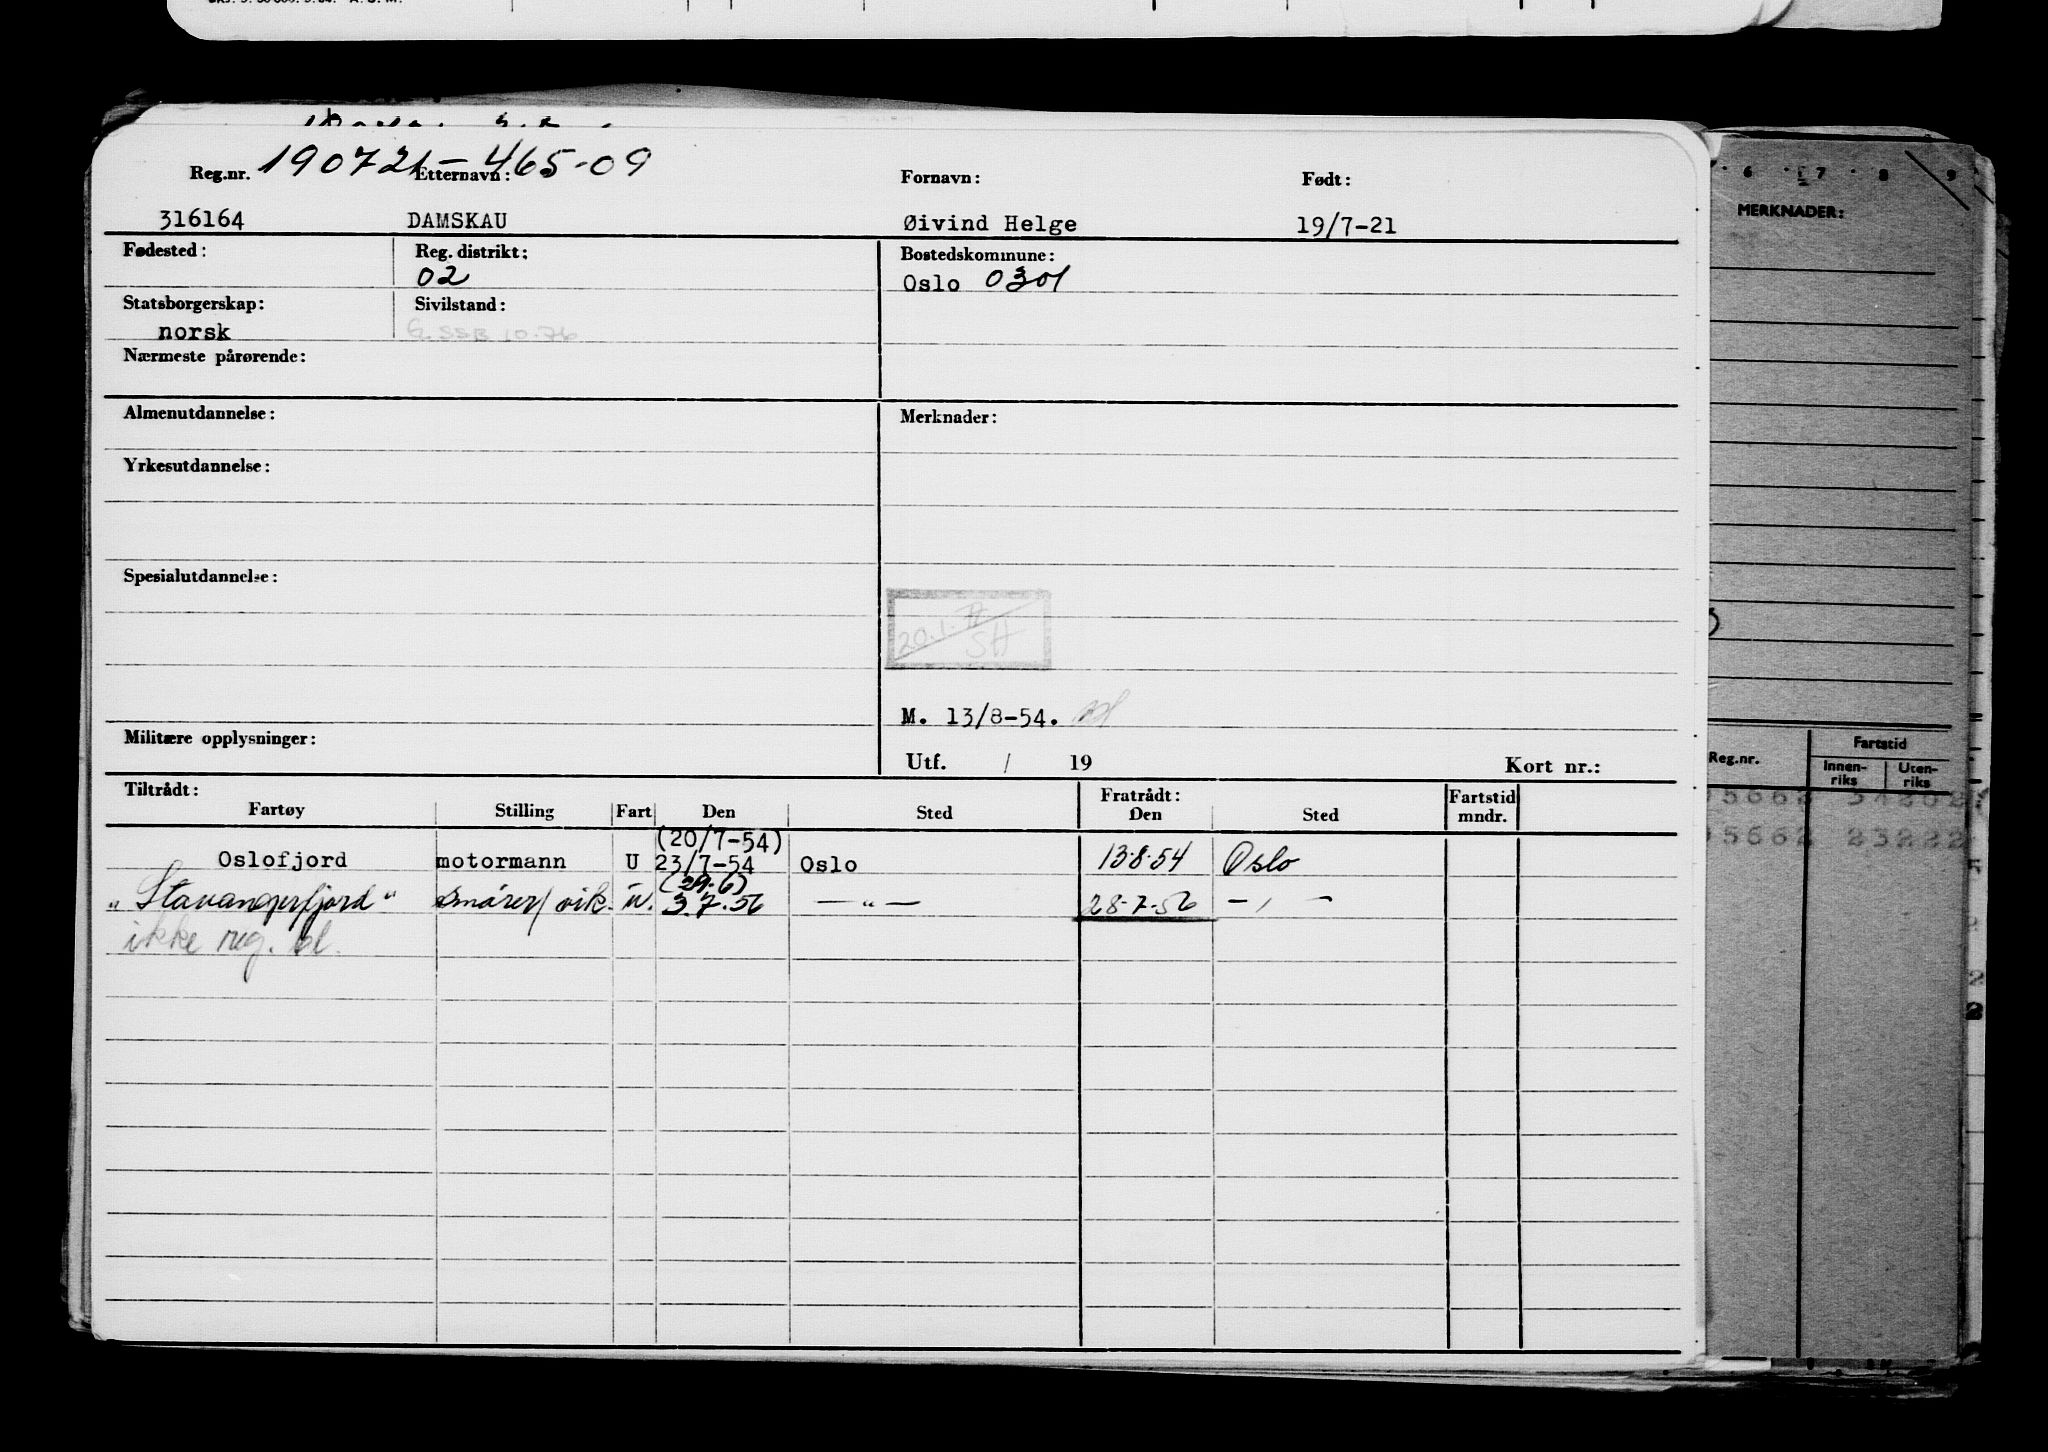 190721-465-09
Reg.nr. Etternavn: Fornavn: Født:
316164 DAMSKAU Øivind Helge 19/7-21
Fødested: Reg. distrikt: Bostedskommune:
02 Oslo 0301
Statsborgerskap: Sivilstand:
norsk G. SSB 10.76
Nærmeste pårørende:
Almenutdannelse: Merknader:
Yrkesutdannelse:
Spesialutdannelse:
20.1. SH
M. 13/8-54.
Militære opplysninger:
Utf. / 19 Kort nr.:
Tiltrådt: Fratrådt: Fartstid
Fartøy Stilling Fart Den Sted Den Sted mndr.
(20/7-54)
Oslofjord motormann U 23/7-54 Oslo 13.8.54 Oslo
(29.6)
"Stavangerfjord" smører/vik. u. 3.7.56 — " — 28.7.56 — , —
ikke reg. bl.
6 7 8 9
MERKNADER:
Reg.nr. Fartstid
Innen-riks Uten-riks